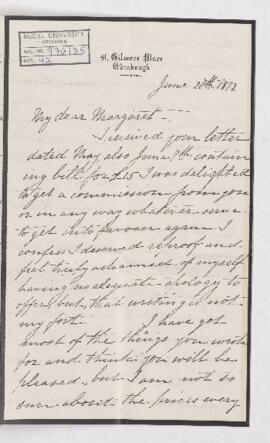 McGILL UNIVERSITY
ARCHIVES
ACC. NO. 976/35
REF. 42
41, Gilmore Place
Edinburgh
June 20th 1872
My dear Margaret
I received your letter
dated May also June 7th contain
ing bill for £15 I was delighted
to get a commission from you
or in any way whatever
to get into favour again I
confess I deserved reproof and
feel truly ashamed of myself
having no adequate apology to
offer but that writing is not
my fort. I have got
most of the things you wrote
for and think you will be
pleased but I am not so
sure about the prices every